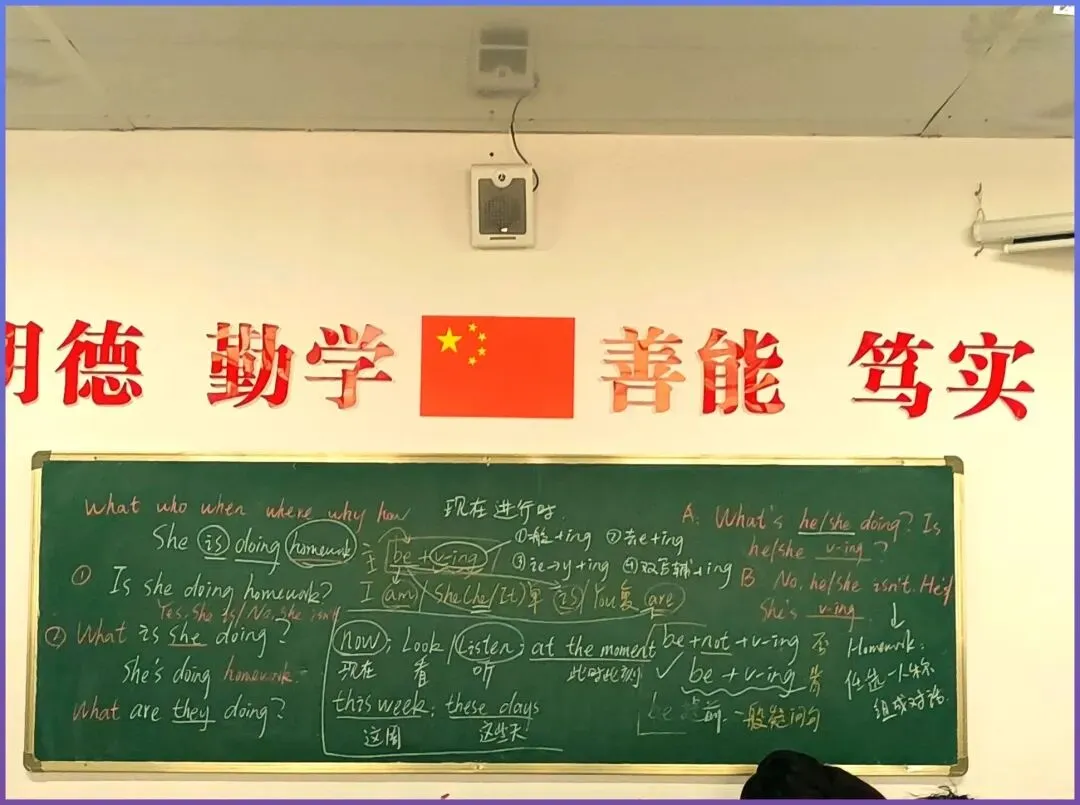 明德 勤学 善能 笃实
What who when where why how
现在进行时
She is doing homework
主 be + v-ing
①一般+ing ②去e+ing
③ie→y+ing ④双写辅+ing
① Is she doing homework?
I am / She/he/It 单 is / You 复 are
Yes, She is / No, she isn't
② What is she doing?
She's doing homework.
What are they doing?
now; Look / Listen; at the moment
现在 看 听 此时此刻
this week, these days
这周 这些天
be + not + v-ing 否
be + v-ing 肯
be 提前 一般疑问句
A: What's he/she doing? Is
he/she v-ing?
B No, he/she isn't. He's/
She's v-ing.
Homework:
任选一人称
组成对话.